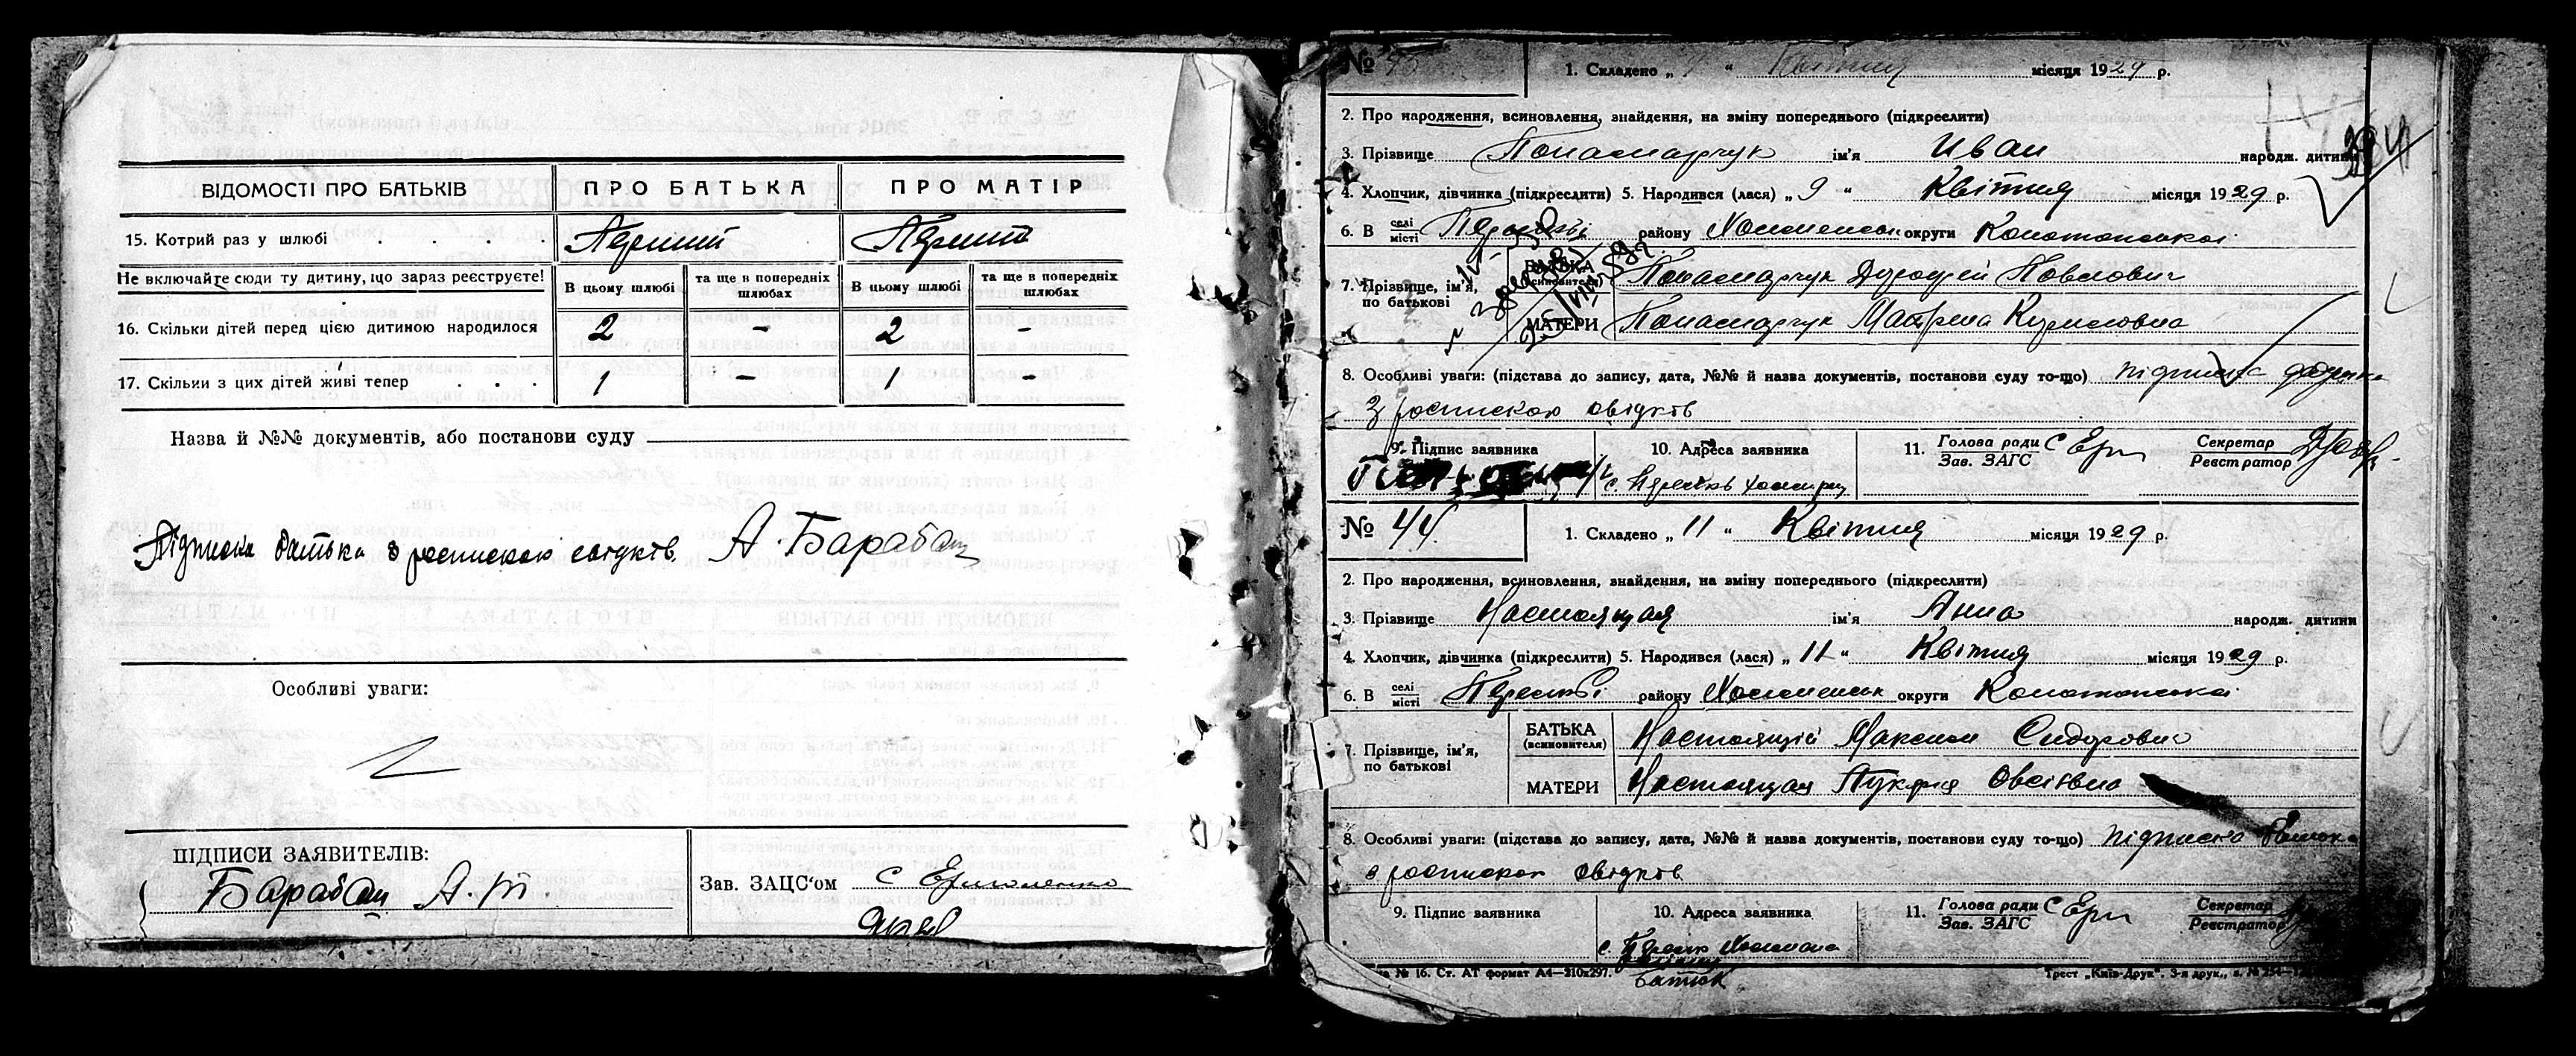 ВІДОМОСТІ ПРО БАТЬКІВ ПРО БАТЬКА ПРО МАТІР
15. Котрий раз у шлюбі Перший Перший
Не включайте сюди ту дитину, що зараз реєструєте! В цьому шлюбі та ще в попередніх шлюбах В цьому шлюбі та ще в попередніх шлюбах
16. Скільки дітей перед цією дитиною народилося 2 - 2 -
17. Скільки з цих дітей живі тепер 1 - 1 -
Назва й №№ документів, або постанови суду
Підписка батька з роспискою свідків. А. Барабаш
Особливі уваги:
ПІДПИСИ ЗАЯВИТЕЛІВ:
Барабаш А. Т.
Зав. ЗАЦС'ом С Ермоленко
№
1. Складено „ “ Квітня місяця 1929 р.
2. Про народження, всиновлення, знайдення, на зміну попереднього (підкреслити)
3. Прізвище Понамарчук ім'я Иван народж. дитини
4. Хлопчик, дівчинка (підкреслити) 5. Народився (лася) „ 9 “ Квітня місяця 1929 р.
6. В селі місті району округи Конотопської
7. Прізвище, ім'я, по батькові
БАТЬКА (всиновителя) Понамарчук Дорофей Павлович
МАТЕРИ Понамарчук Мотрена
8. Особливі уваги: (підстава до запису, дата, №№ й назва документів, постанови суду то-що) підписка
з роспискою свідків
9. Підпис заявника 10. Адреса заявника 11. Голова ради Зав. ЗАГС С Ерм Секретар Реєстратор
№ 44.
1. Складено „ 11 “ Квітня місяця 1929 р.
2. Про народження, всиновлення, знайдення, на зміну попереднього (підкреслити)
3. Прізвище Настоящая ім'я Анна народж. дитини
4. Хлопчик, дівчинка (підкреслити) 5. Народився (лася) „ 11 “ Квітня місяця 1929 р.
6. В селі місті району округи Конотопської
7. Прізвище, ім'я, по батькові
БАТЬКА (всиновителя) Настоящій Максим Сидорович
МАТЕРИ Настоящая Овсіївна
8. Особливі уваги: (підстава до запису, дата, №№ й назва документів, постанови суду то-що) підписка батька
з роспискою свідків
9. Підпис заявника 10. Адреса заявника 11. Голова ради Зав. ЗАГС С Ерм Секретар Реєстратор
№ 16. Ст. АТ формат А4—210х297. Трест „Київ-Друк“. 3-я друк.,